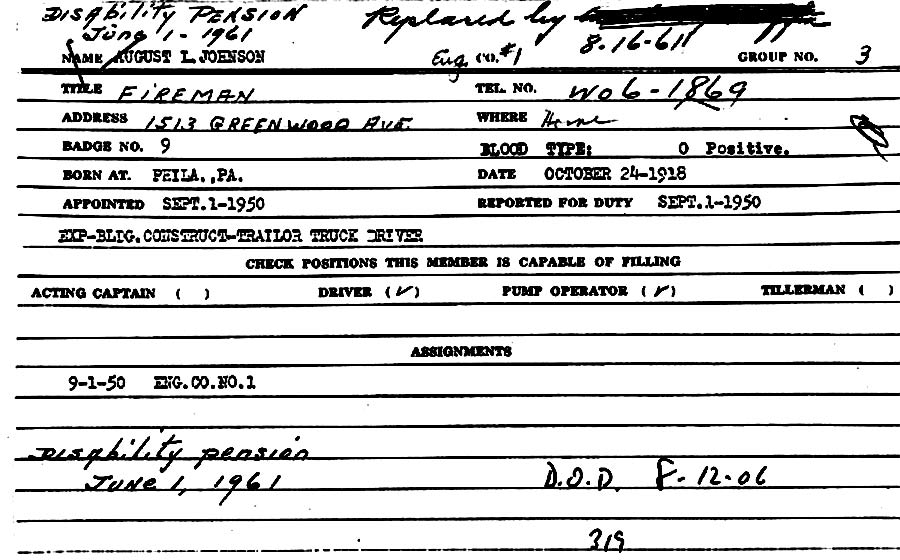 DISABILITY PENSION Replaced by
JUNE 1-1961 8-16-61
NAME AUGUST L. JOHNSON Eng. CO. #1 GROUP NO. 3
TITLE FIREMAN TEL. NO. WO6-1869
ADDRESS 1513 GREENWOOD AVE. WHERE Home
BADGE NO. 9 BLOOD TYPE: O Positive.
BORN AT. PHILA.,PA. DATE OCTOBER 24-1918
APPOINTED SEPT.1-1950 REPORTED FOR DUTY SEPT.1-1950
EXP-BLDG.CONSTRUCT-TRAILOR TRUCK DRIVER
CHECK POSITIONS THIS MEMBER IS CAPABLE OF FILLING
ACTING CAPTAIN ( ) DRIVER (✓) PUMP OPERATOR (✓) TILLERMAN ( )
ASSIGNMENTS
9-1-50 ENG.CO.NO.1
Disability pension
JUNE 1, 1961 D.O.D. 8-12-06
319